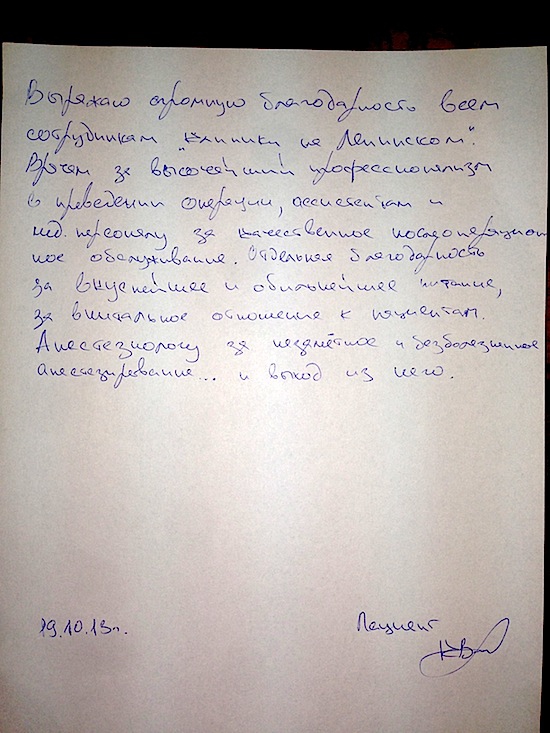 Выражаю огромную благодарность всем
сотрудникам "Клиники на Ленинском".
Врачам за высочайший профессионализм
в проведении операции, ассистентам и
мед. персоналу за качественное послеоперацион
ное обслуживание. Отдельная благодарность
за вкуснейшее и обильнейшее питание,
за внимальное отношение к пациентам.
Анестезиологу за незаметное и безболезненное
анестезирование... и выход из него.
19.10.13г.
Пациент